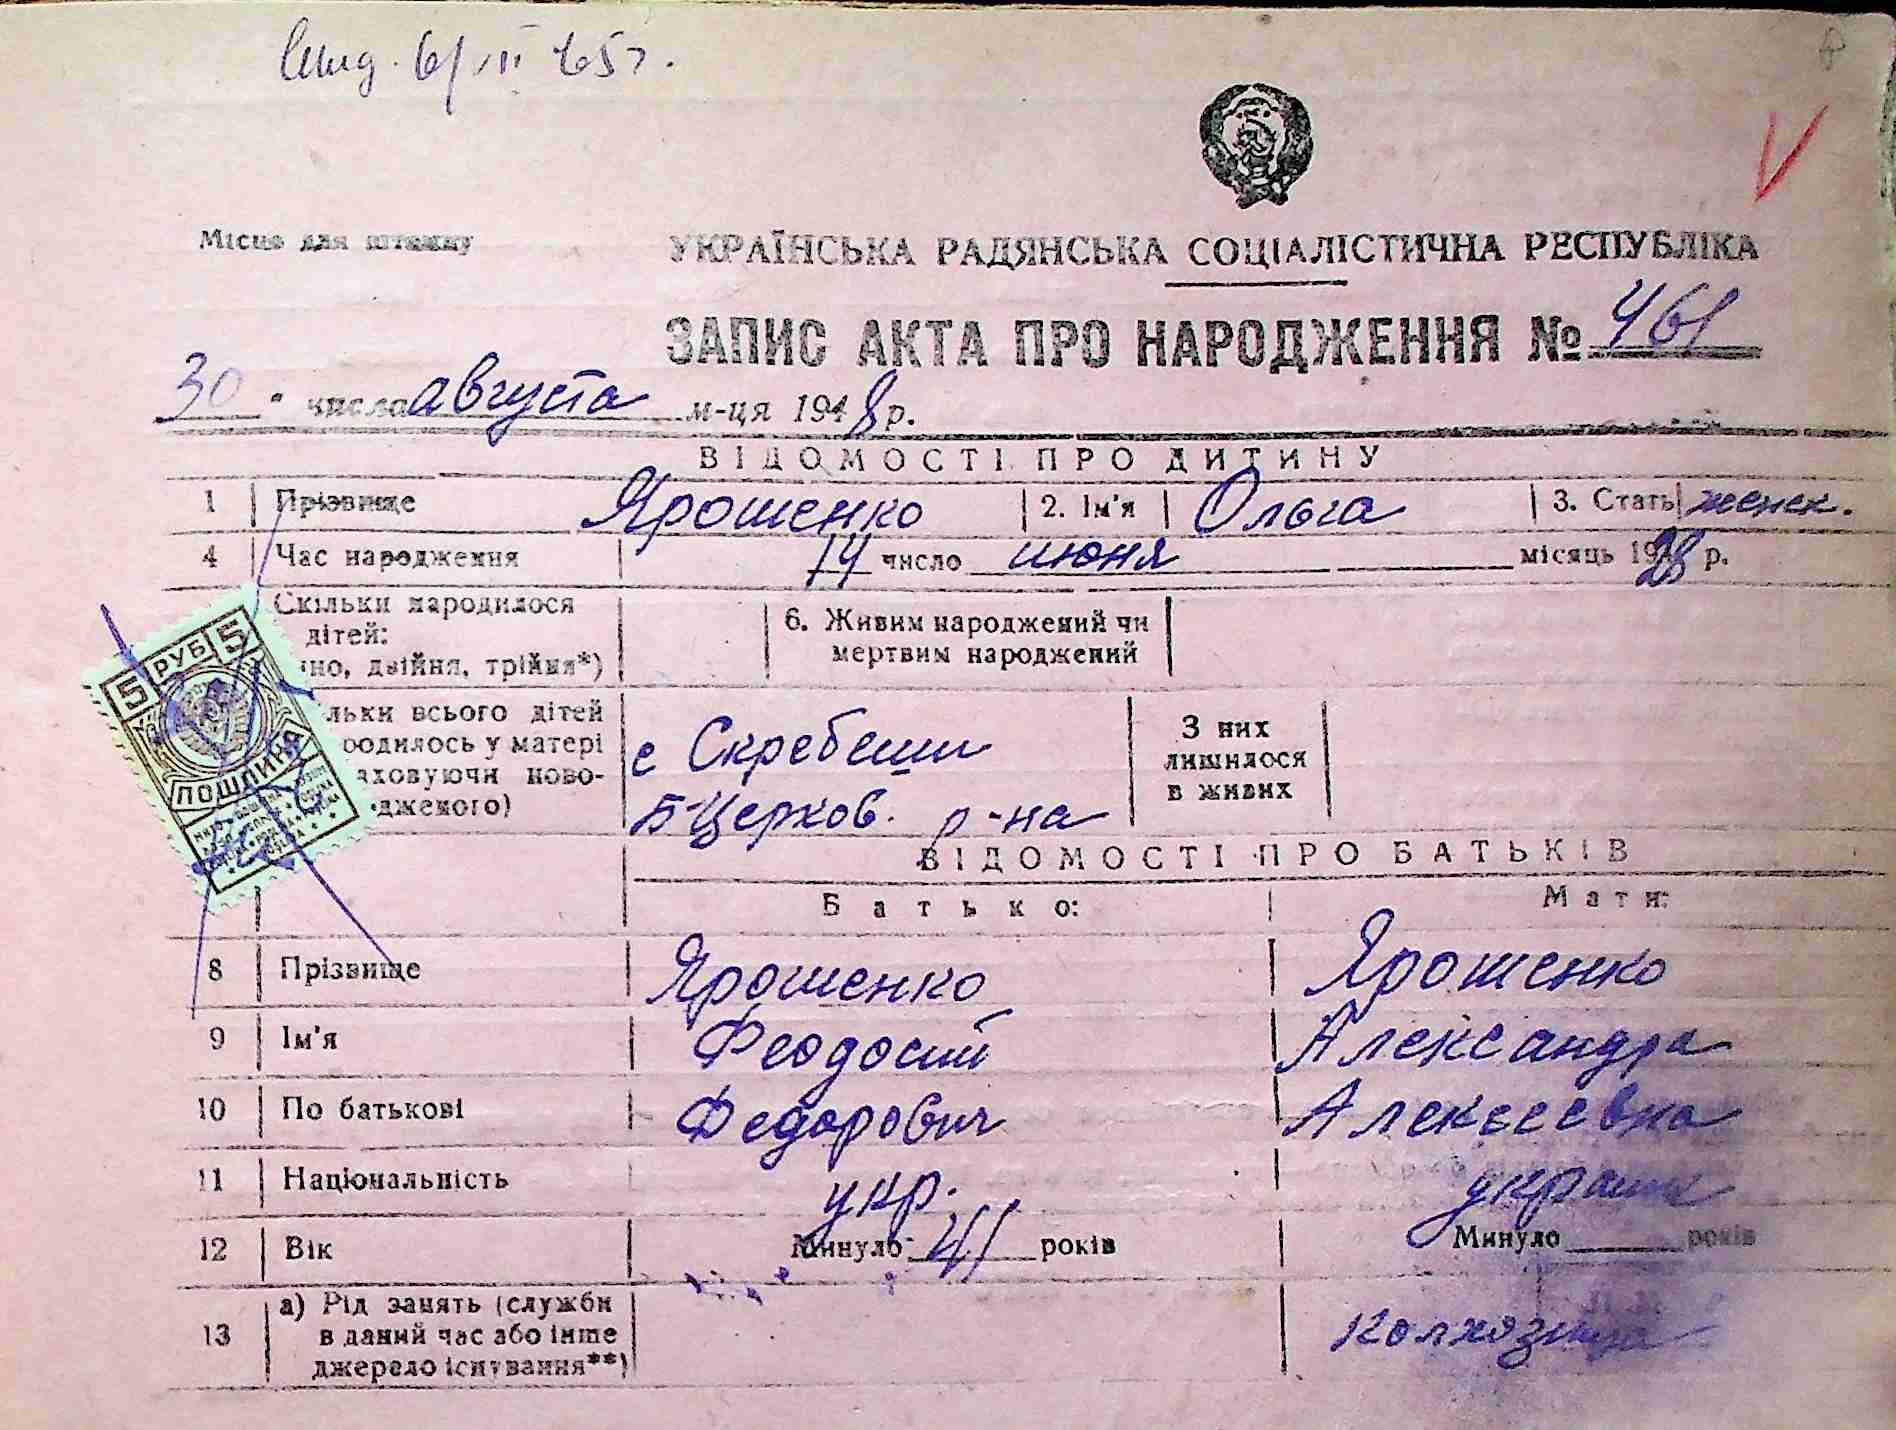 6/VII 65 г.
Місце для штампу
УКРАЇНСЬКА РАДЯНСЬКА СОЦІАЛІСТИЧНА РЕСПУБЛІКА
ЗАПИС АКТА ПРО НАРОДЖЕННЯ № 461
30 числа августа м-ця 1948 р.
ВІДОМОСТІ ПРО ДИТИНУ
1 Прізвище Ярошенко 2. Ім'я Ольга 3. Стать женск.
4 Час народження 14 число июня місяць 1928 р.
Скільки народилося
дітей:
но, двійня, трійня*)
6. Живим народжений чи
мертвим народжений
льки всього дітей
родилось у матері
аховуючи ново-
дженого)
с Скребеши
Б-Церков. р-на
З них
лишилося
в живих
5 РУБ 5
ПОШЛИНА
ВІДОМОСТІ ПРО БАТЬКІВ
Батько: Мати:
8 Прізвище Ярошенко Ярошенко
9 Ім'я Феодосий Александра
10 По батькові Федорович Алексеевна
11 Національність укр. украин
12 Вік Минуло 41 років Минуло років
13 а) Рід занять (служби
в даний час або інше
джерело існування**)
колхозница